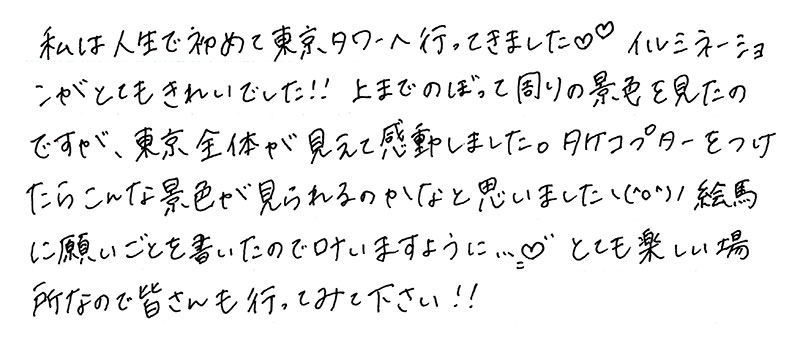 私は人生で初めて東京タワーへ行ってきました♡♡ イルミネーショ
ンがとてもきれいでした!! 上までのぼって周りの景色を見たの
ですが、東京全体が見えて感動しました。タケコプターをつけ
たらこんな景色が見られるのかなと思いました\(^o^)/ 絵馬
に願いごとを書いたので叶いますように...♡ とても楽しい場
所なので皆さんも行ってみて下さい!!